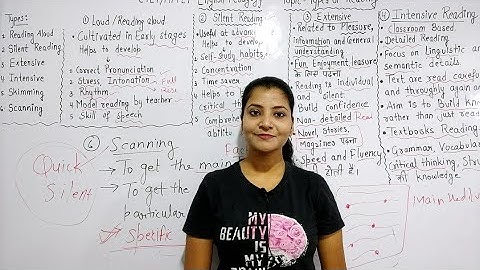 English Pedagogy
Topic - Types of Reading
Types:
1. Reading Aloud
2. Silent Reading
3. Extensive
4. Intensive
5. Skimming
6. Scanning
① Loud / Reading aloud
• Cultivated in Early stages
Helps to develop
1. Correct Pronunciation
2. Stress Intonation
3. Rhythm
4. Model reading by teacher
5. Skill of speech
② Silent Reading
• Useful at advance
Helps to develop
1. Self-study habits
2. Concentration
3. Time saves
4. Helps to
critical
5. Comprehens
ability
③ Extensive
• Related to Pleasure,
information and General
understanding
• Fun, Enjoyment, leasure
के लिए पढ़ना
• Reading is individual
and silent
• Build confidence
• Non-detailed Read
Novel, Stories,
Magzines पढ़ना
• Speed and Fluency
होती है।
④ Intensive Reading
• Classroom Based
• Detailed Reading
• Focus on Linguistic an
semantic details
• Text are read careful
and throughly again an
• Aim is to Build know
rather than just read
• Textbooks Reading
• Grammar, Vocabular
critical thinking, Str
की knowledge
⑥ Scanning
→ To get the main
→ To get the
particular
→ Specific
Quick
Silent
MY
BEAUTY
IS
MY